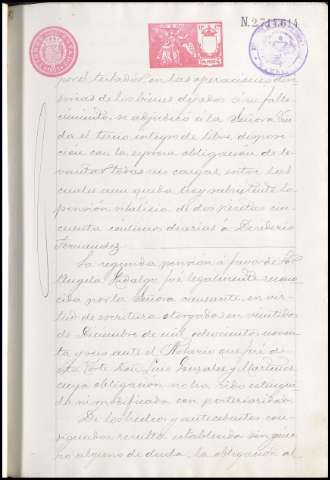 N.2.714.614
por el testador, en las operaciones divi-
sorias de los bienes dejados a su falle-
cimiento, se adjudicó a la Señora Viu-
da el tercio íntegro de libre disposi-
ción con la expresa obligación de le-
vantar todas las cargas, entre las
cuales aun queda hoy subsistente la
pensión vitalicia de dos pesetas cin-
cuenta céntimos diarias á Desiderio
Fernandez.
La segunda pension á favor de Dª
Angela Hidalgo fué legalmente recono-
cida por la Señora causante, en vir-
tud de escritura otorgada en veintidos
de Diciembre de mil ochocientos noven-
ta y uno ante el Notario que fué de
esta Corte Don Luis Gonzalez y Martinez
cuya obligacion no ha sido extingui-
da ni modificada con posterioridad.
De los hechos y antecedentes con-
signados resulta establecida sin géne-
ro alguno de duda, la obligación al